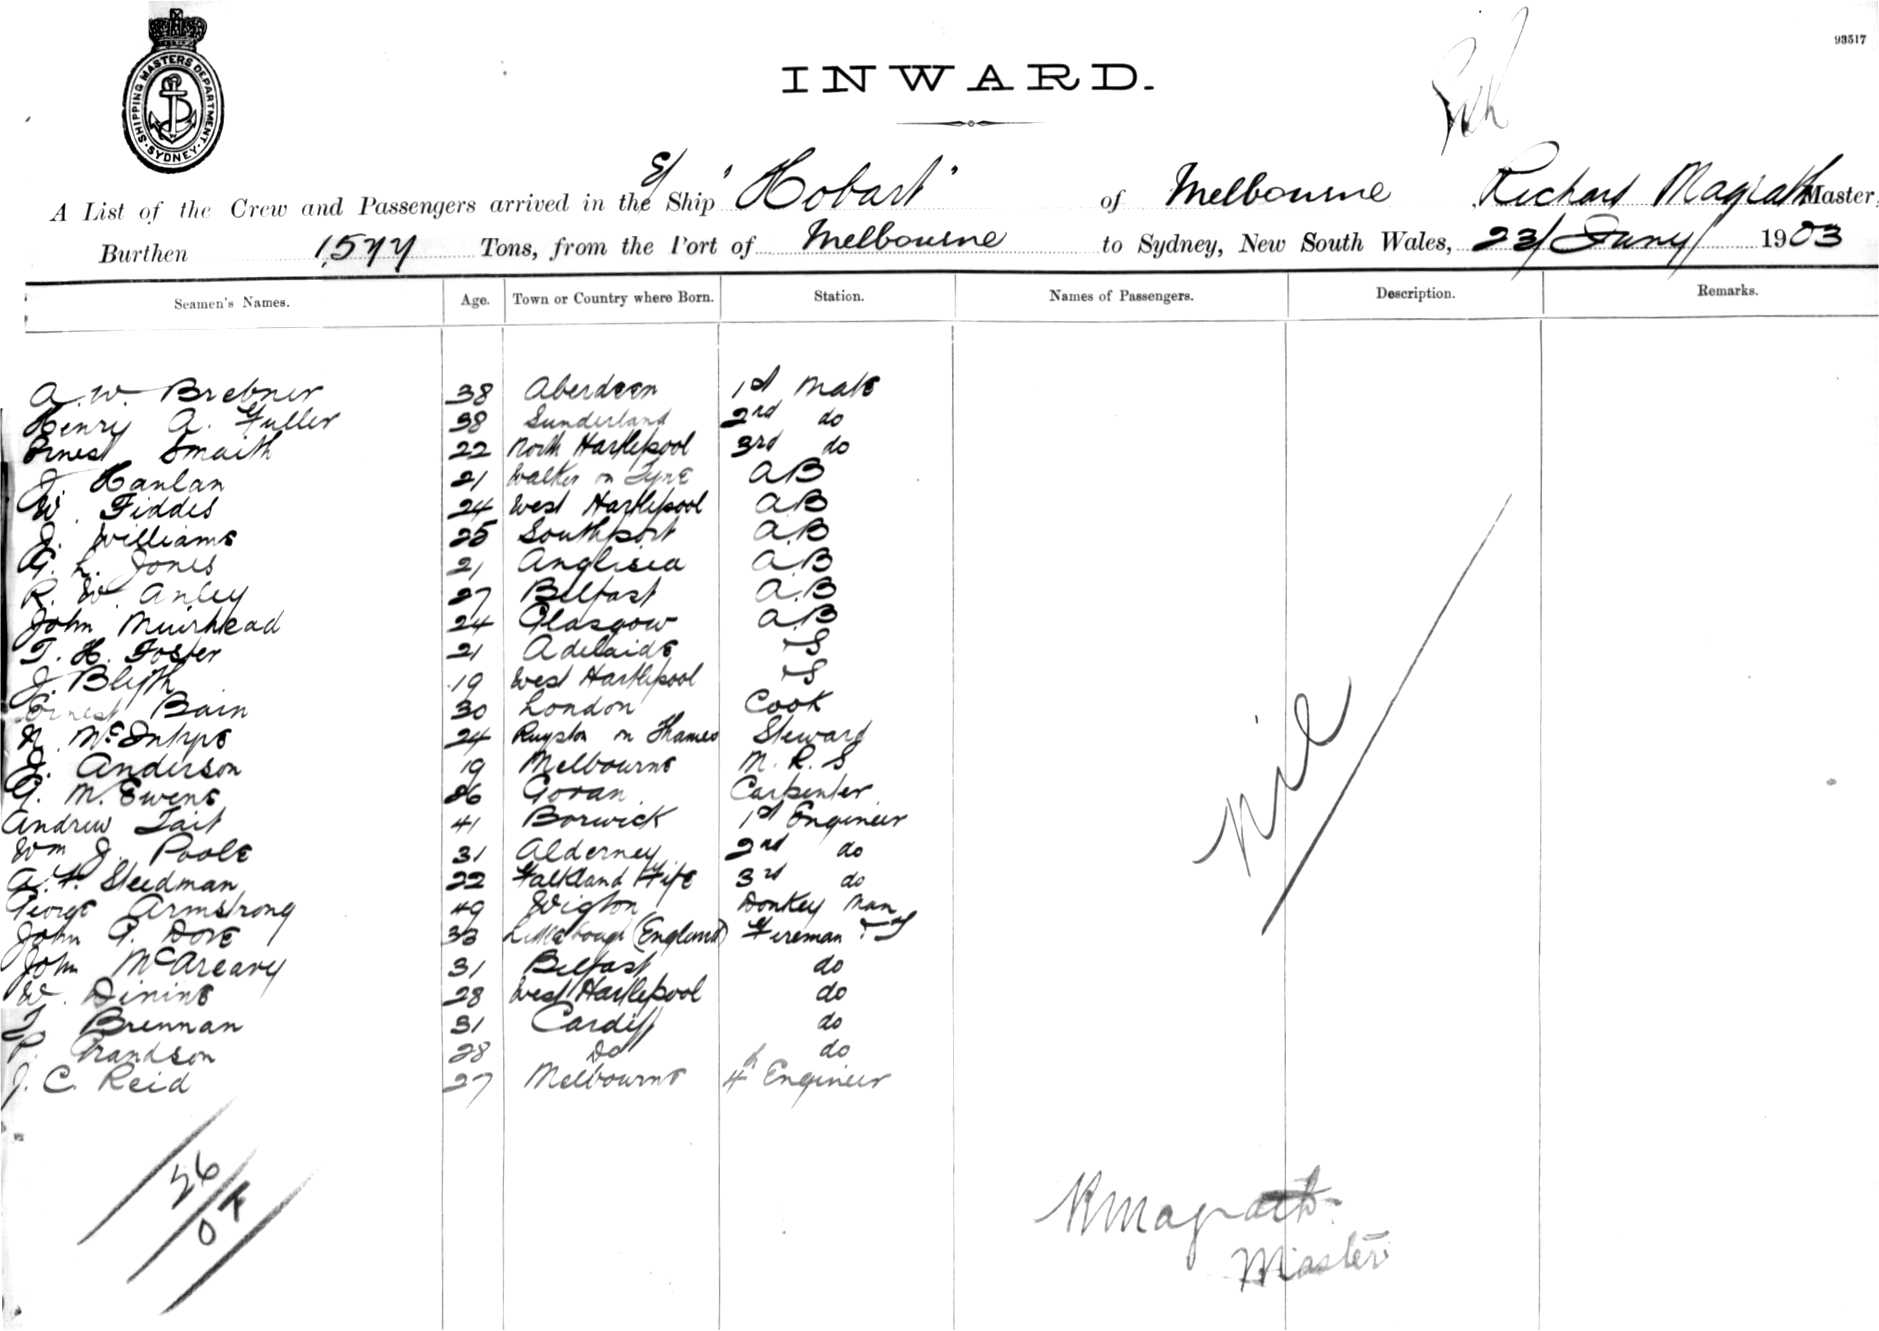 93517
SHIPPING MASTERS DEPARTMENT
SYDNEY
INWARD.
A List of the Crew and Passengers arrived in the S/ Ship "Hobart" of Melbourne Richard Magrath Master,
Burthen 1,577 Tons, from the Port of Melbourne to Sydney, New South Wales, 23/ Jany/ 1903
Seamen's Names. Age. Town or Country where Born. Station. Names of Passengers. Description. Remarks.
A. W. Brebner 38 Aberdeen 1st Mate
Henry A. Fuller 38 Sunderland 2nd do
Ernest Smaith 22 North Hartlepool 3rd do
J. Hanlan 21 Walker on Tyne AB
W. Fiddes 24 West Hartlepool AB
J. Williams 25 Southport A.B
G. L. Jones 21 Anglisea A.B
R. W. Anley 27 Belfast A.B
John Muirhead 24 Glasgow A.B
T. H. Foster 21 Adelaide
J. Blyth 19 West Hartlepool
Ernest Bain 30 London Cook
McIntyre 24 on Thames Steward
J. Anderson 19 Melbourne M. R. S
G. M. Ewens Govan Carpenter
Andrew Tait 41 Borwick 1st Engineer
Wm J. Poole 31 Alderney 2nd do
A. F. Steedman 22 Falkland Fife 3rd do
George Armstrong 49 Wigton Donkey Man
John G. Dove 33 (England) Fireman
John McAreavy 31 Belfast do
W. Dinine 28 West Hartlepool do
T. Brennan 31 Cardiff do
P. Frandson 28 Do do
J. C. Reid 27 Melbourne 4th Engineer
Nil
26
OF
RMagrath
Master